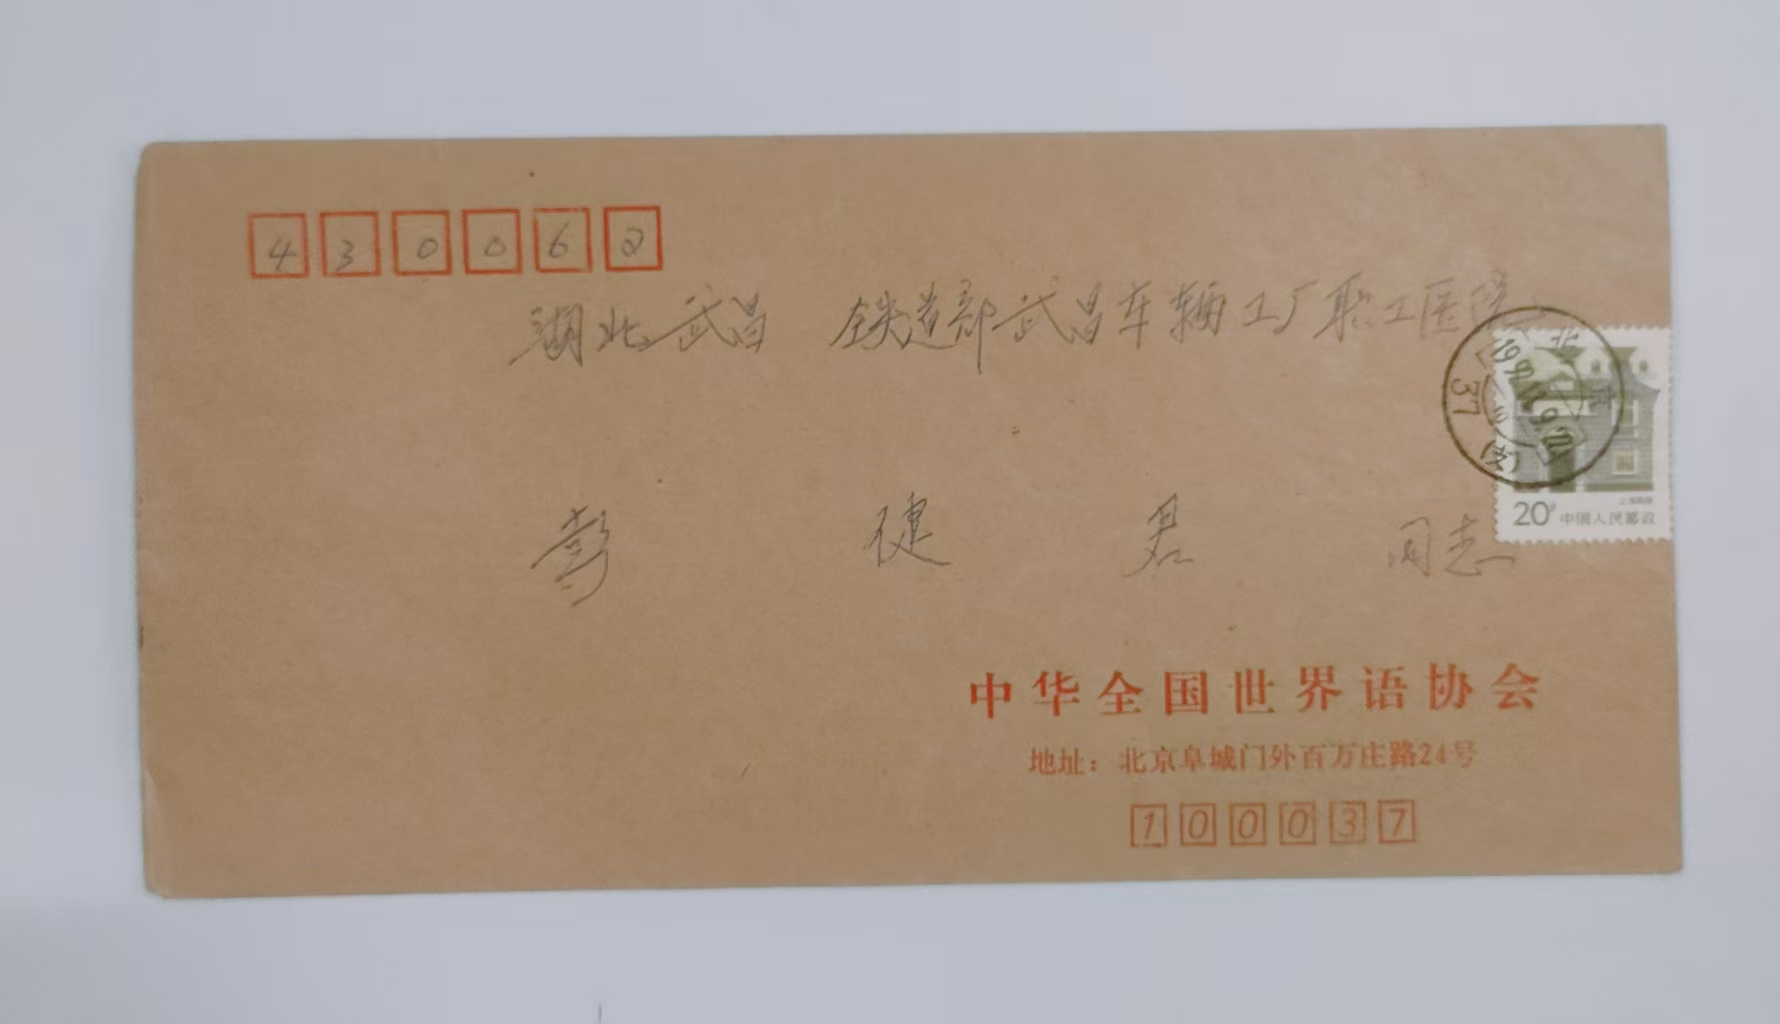 430062
湖北武昌 铁道部武昌车辆工厂职工医院
彭健君 同志
北京
37
上海民居
20分 中国人民邮政
中华全国世界语协会
地址：北京阜城门外百万庄路24号
100037